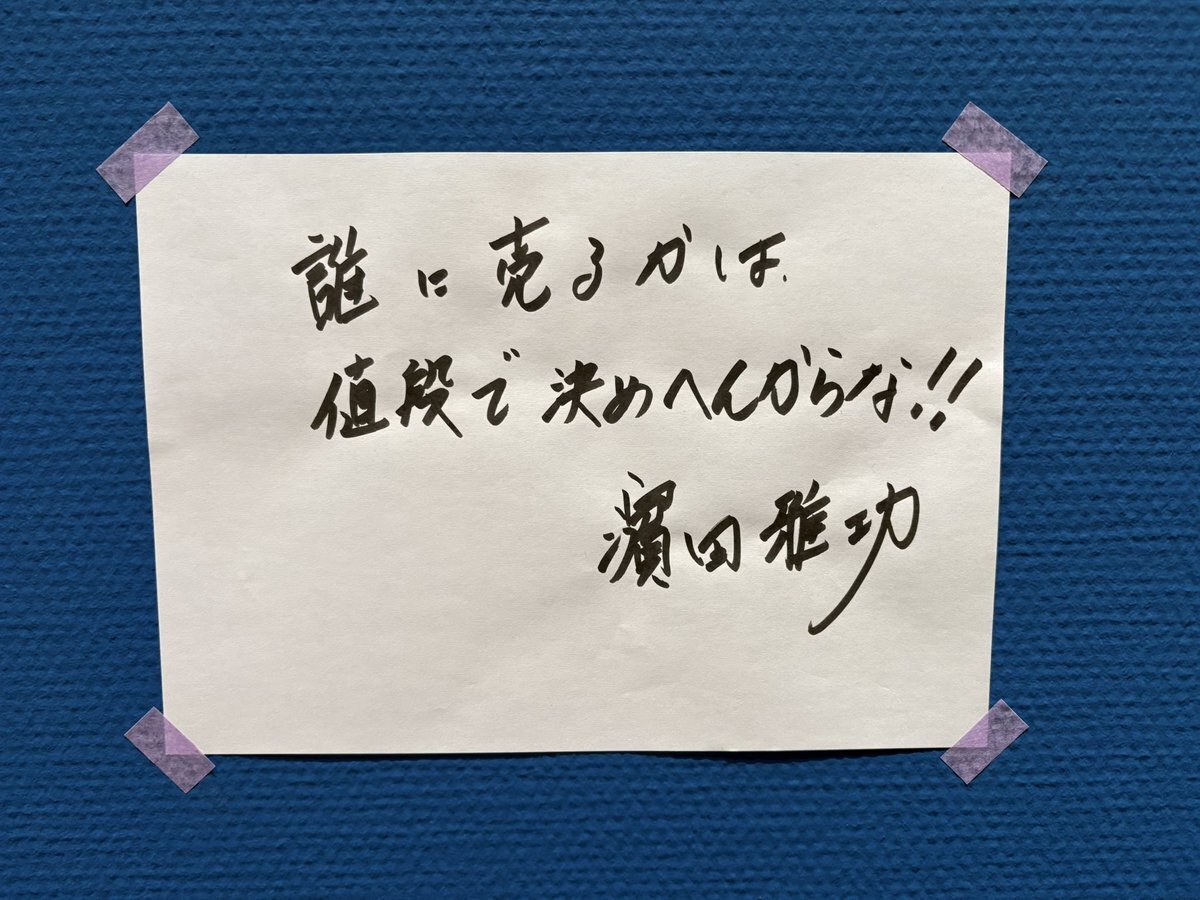 誰に売るかは、
値段で決めへんからな!!
濱田雅功